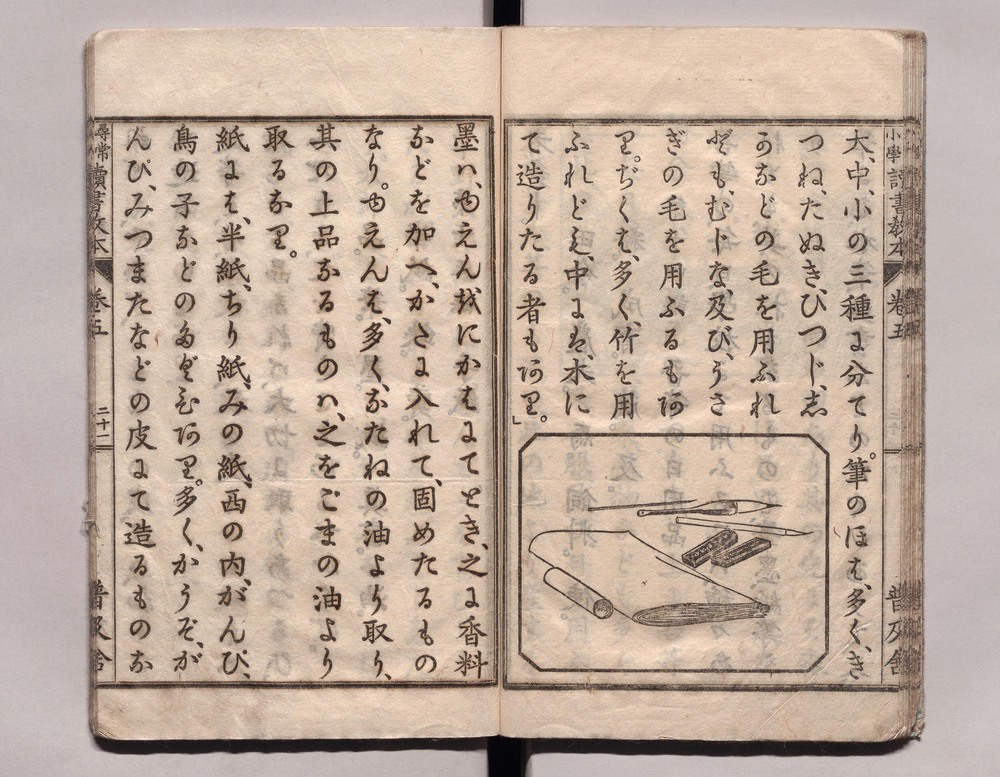 小學讀書教本 卷五 普及舍
大、中、小の三種に分てり。筆のほは、多く、き
つね、たぬき、ひつじ、志
かなどの毛を用ふれ
ども、むじな、及び、うさ
ぎの毛を用ふるもあ
り。ぢくは、多く、竹を用
ふれども、中には、木に
て造りたる者もあり。」
墨ハ、ゆえんをにかはにてとき、之に香料
などを加へ、かたに入れて、固めたるもの
なり。ゆえんは、多く、なたねの油より取り、
其の上品なるものハ、之をごまの油より
取るなり。
紙には、半紙、ちり紙、みの紙、西の内、がんぴ、
鳥の子などのたぐひあり。多く、かうぞ、が
んぴ、みつまたなどの皮にて造るものな
尋常讀書教本 卷五 二十一 普及舍